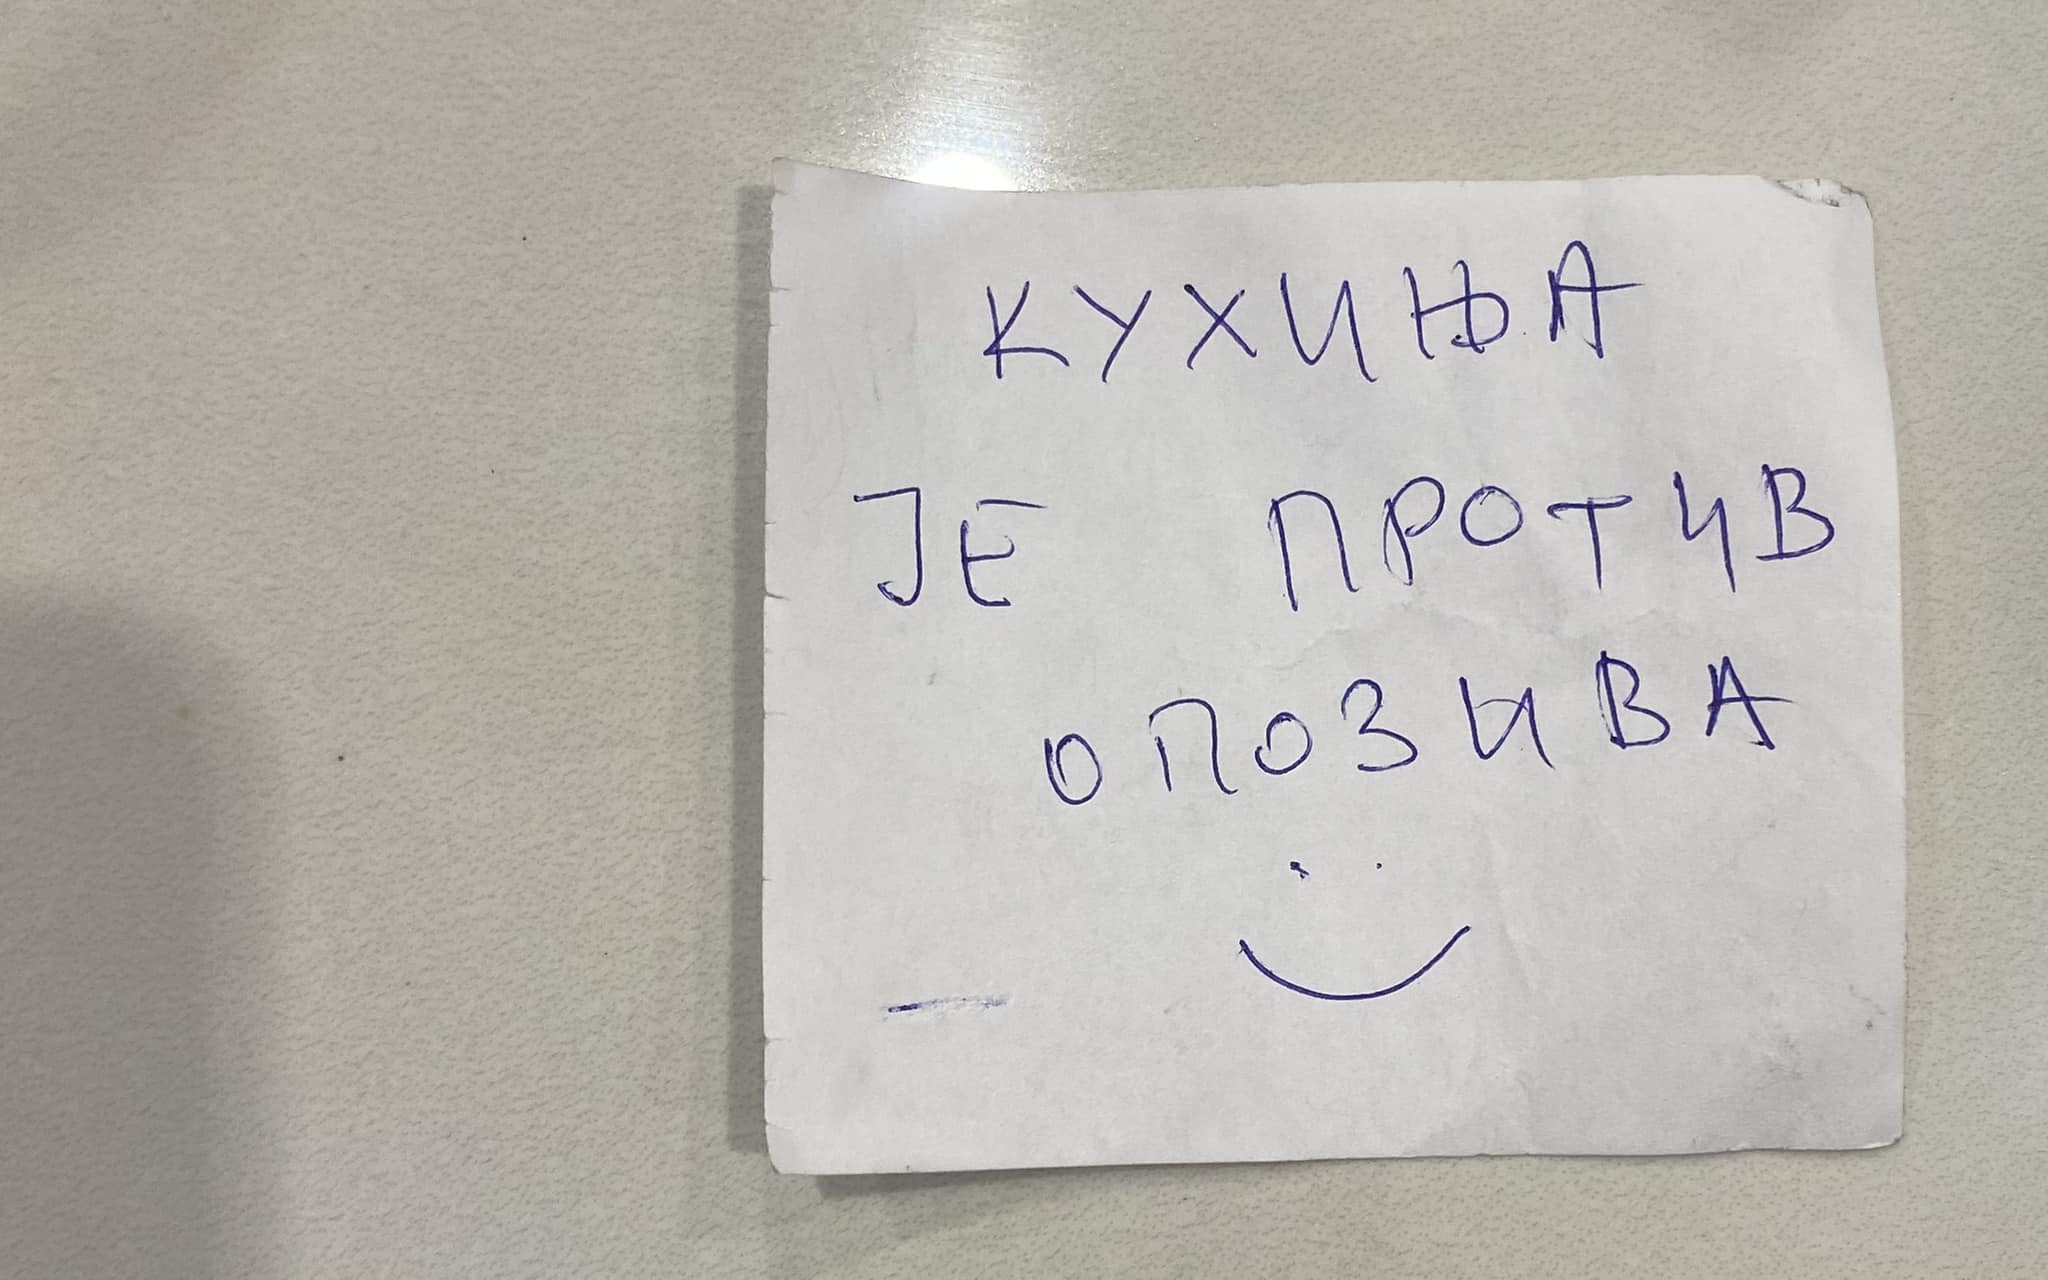 КУХИЊА
ЈЕ ПРОТИВ
ОПОЗИВА